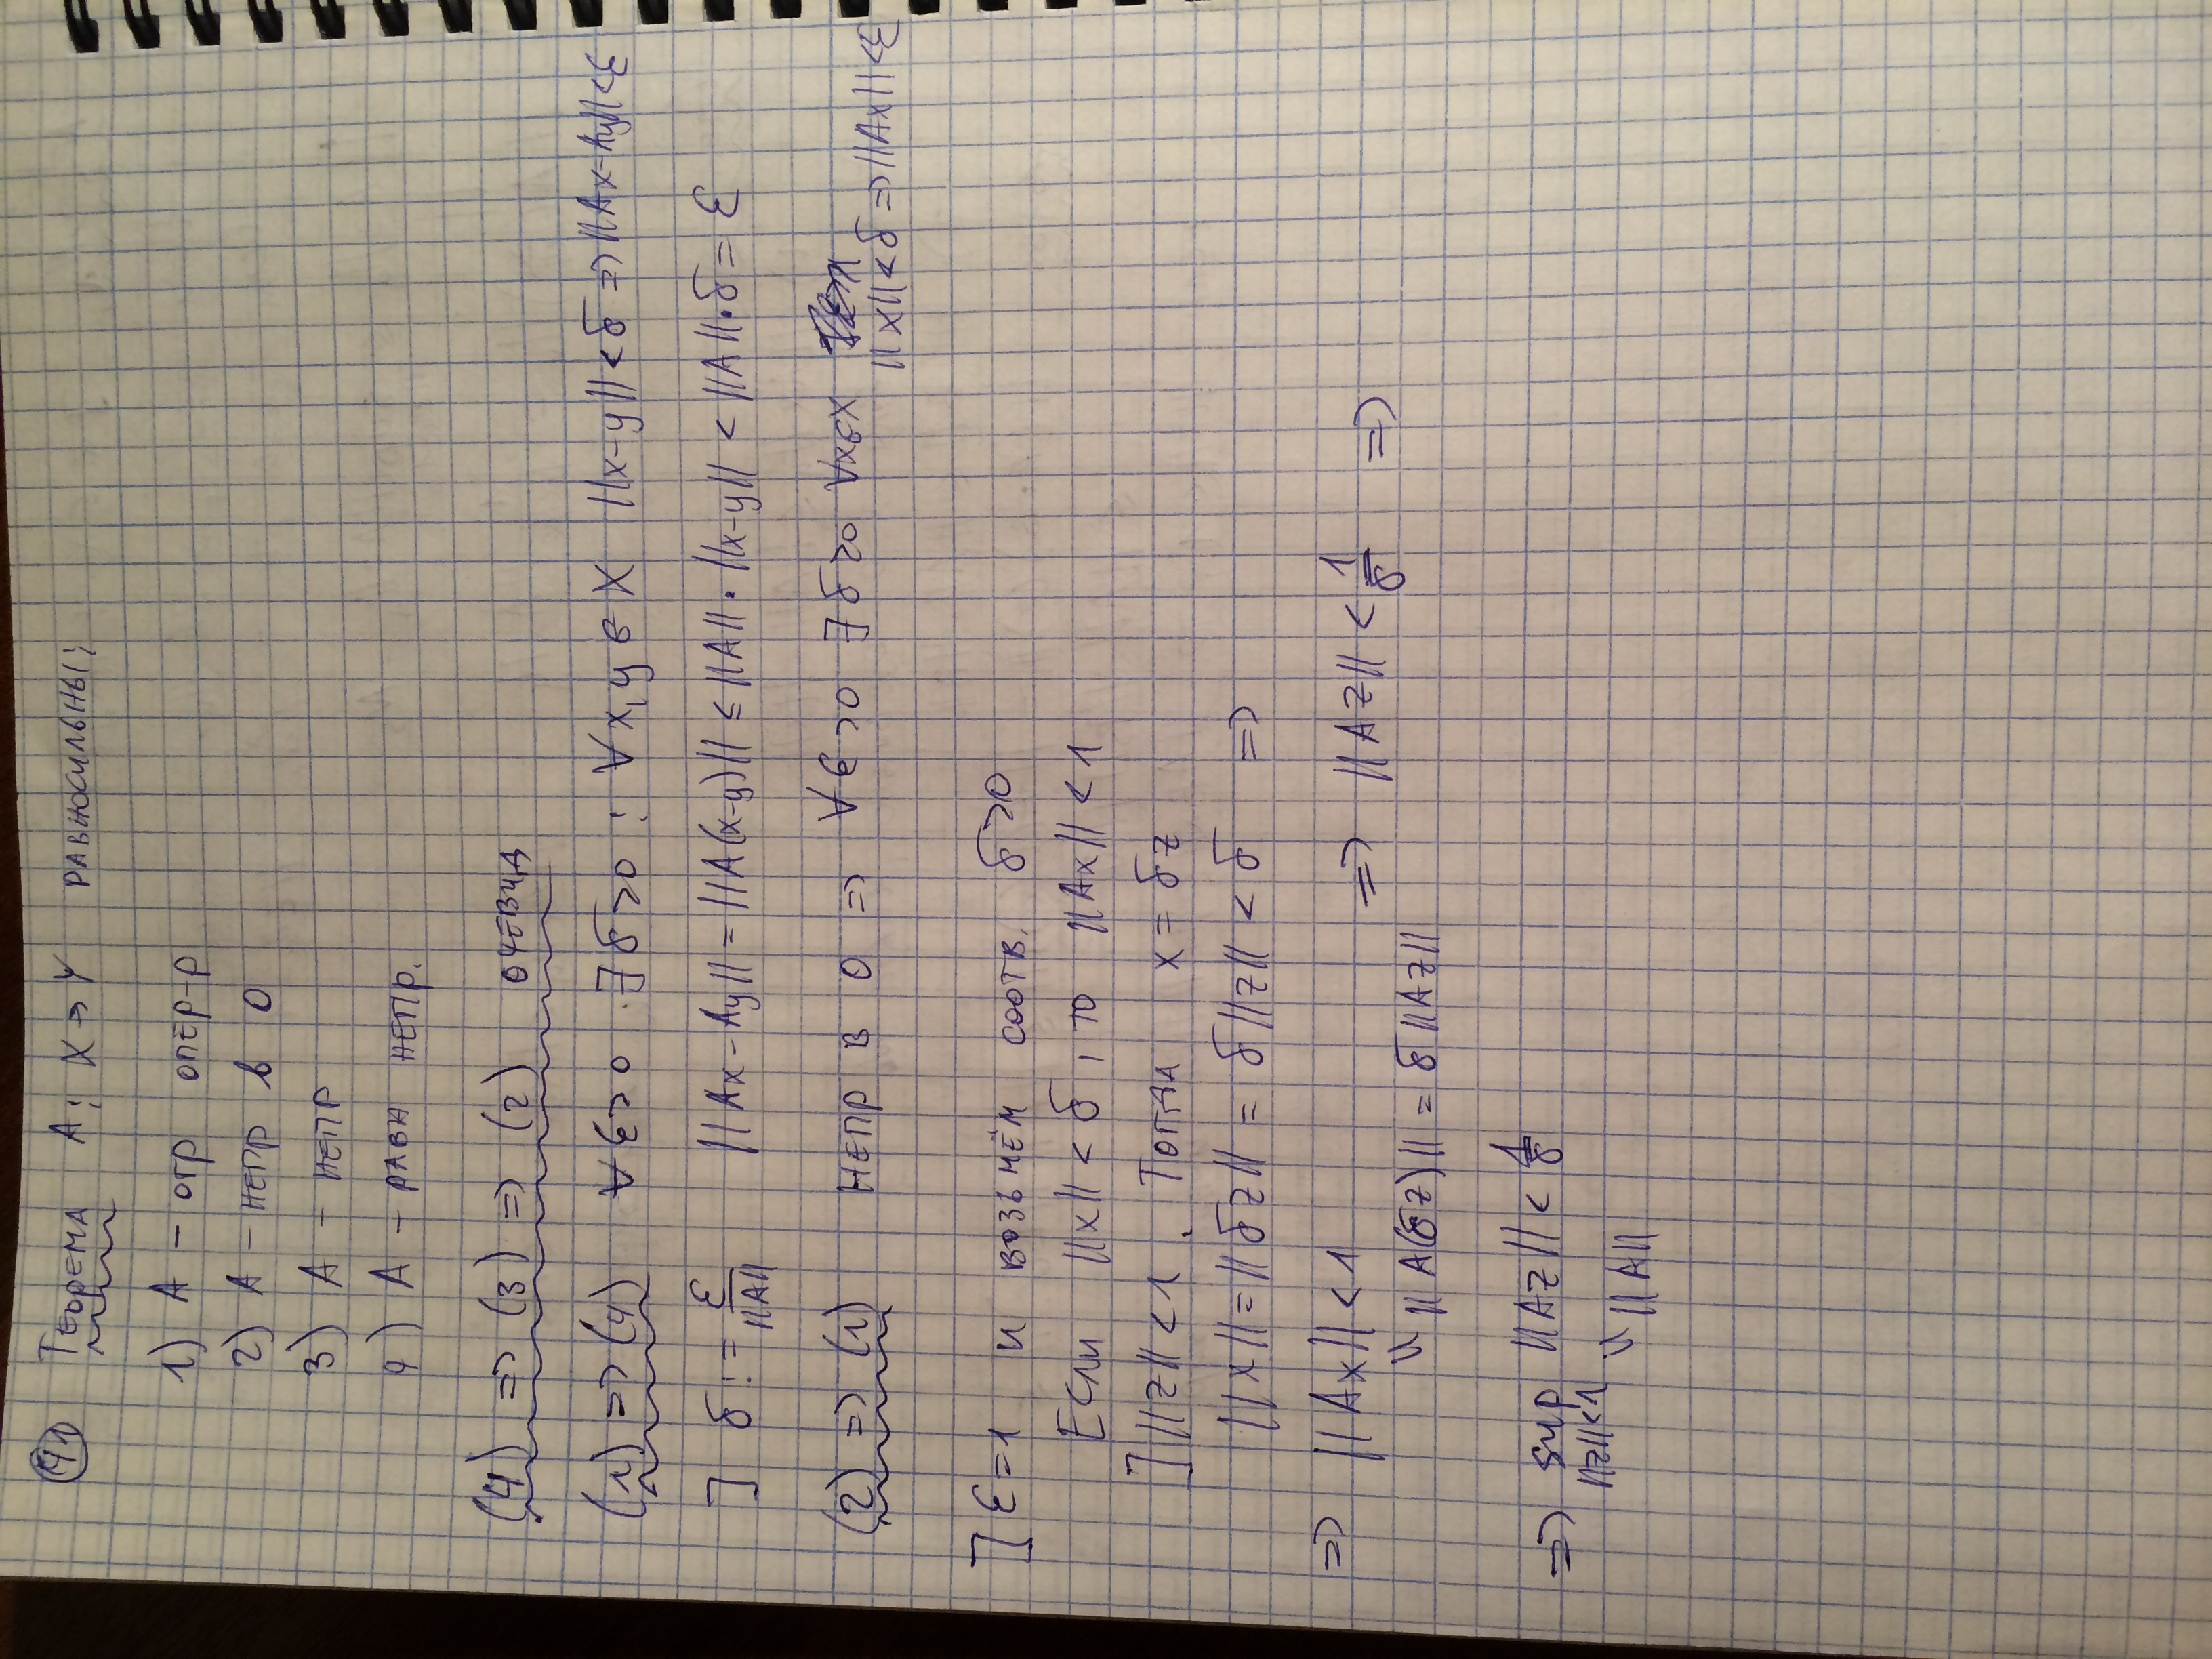 41 ТЕОРЕМА A: X → Y РАВНОСИЛЬНЫ:
1) A – ОГР ОПЕР-Р
2) A – НЕПР В 0
3) A – НЕПР
4) A – РАВН НЕПР.
(4) => (3) => (2) ОЧЕВИД
(1) => (4) ∀ε>0 ∃δ>0 : ∀x,y∈X ||x-y||<δ => ||Ax-Ay||<ε
] δ := ε/||A|| ||Ax-Ay|| = ||A(x-y)|| ≤ ||A||·||x-y|| < ||A||·δ = ε
(2) => (1) НЕПР В 0 => ∀ε>0 ∃δ>0 ∀x∈X
||x||<δ => ||Ax||<ε
] ε=1 И ВОЗЬМЁМ СООТВ. δ>0
ЕСЛИ ||x|| < δ, ТО ||Ax|| < 1
] ||z|| < 1. ТОГДА x = δz
||x|| = ||δz|| = δ||z|| < δ =>
=> ||Ax|| < 1 => ||Az|| < 1/δ =>
" ||A(δz)|| = δ||Az||
=> sup ||Az|| < 1/δ
||z||<1
" ||A||